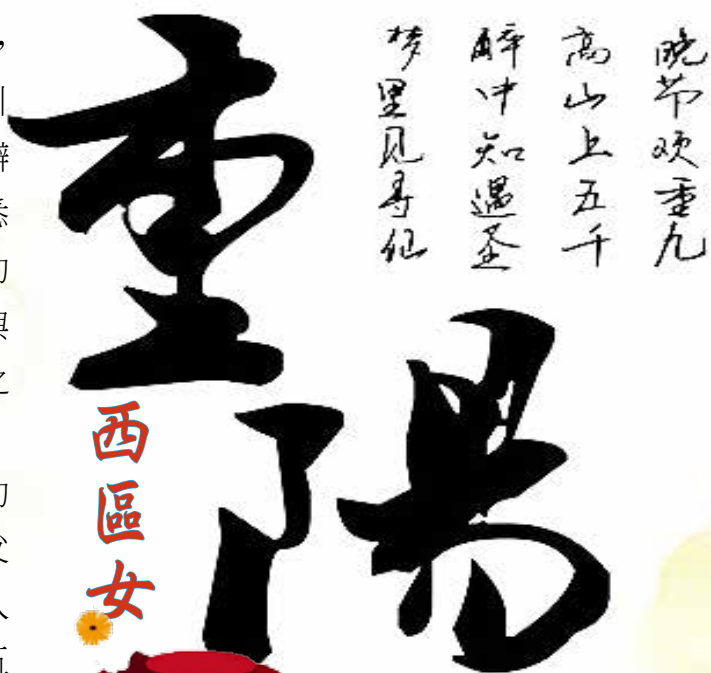 晚节欢重九
高山上五千
醉中知遇圣
梦里见寻仙
重陽
西區女